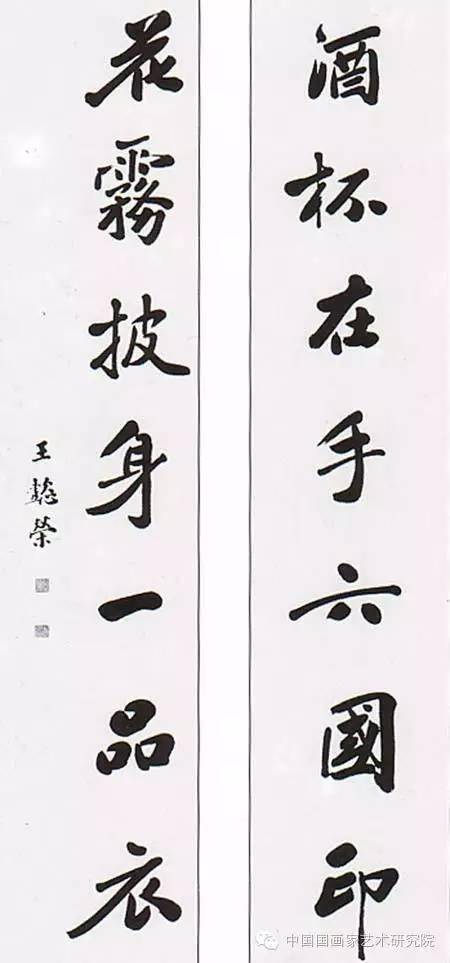 酒杯在手六國印
花霧披身一品衣
王懿榮
中国国画家艺术研究院